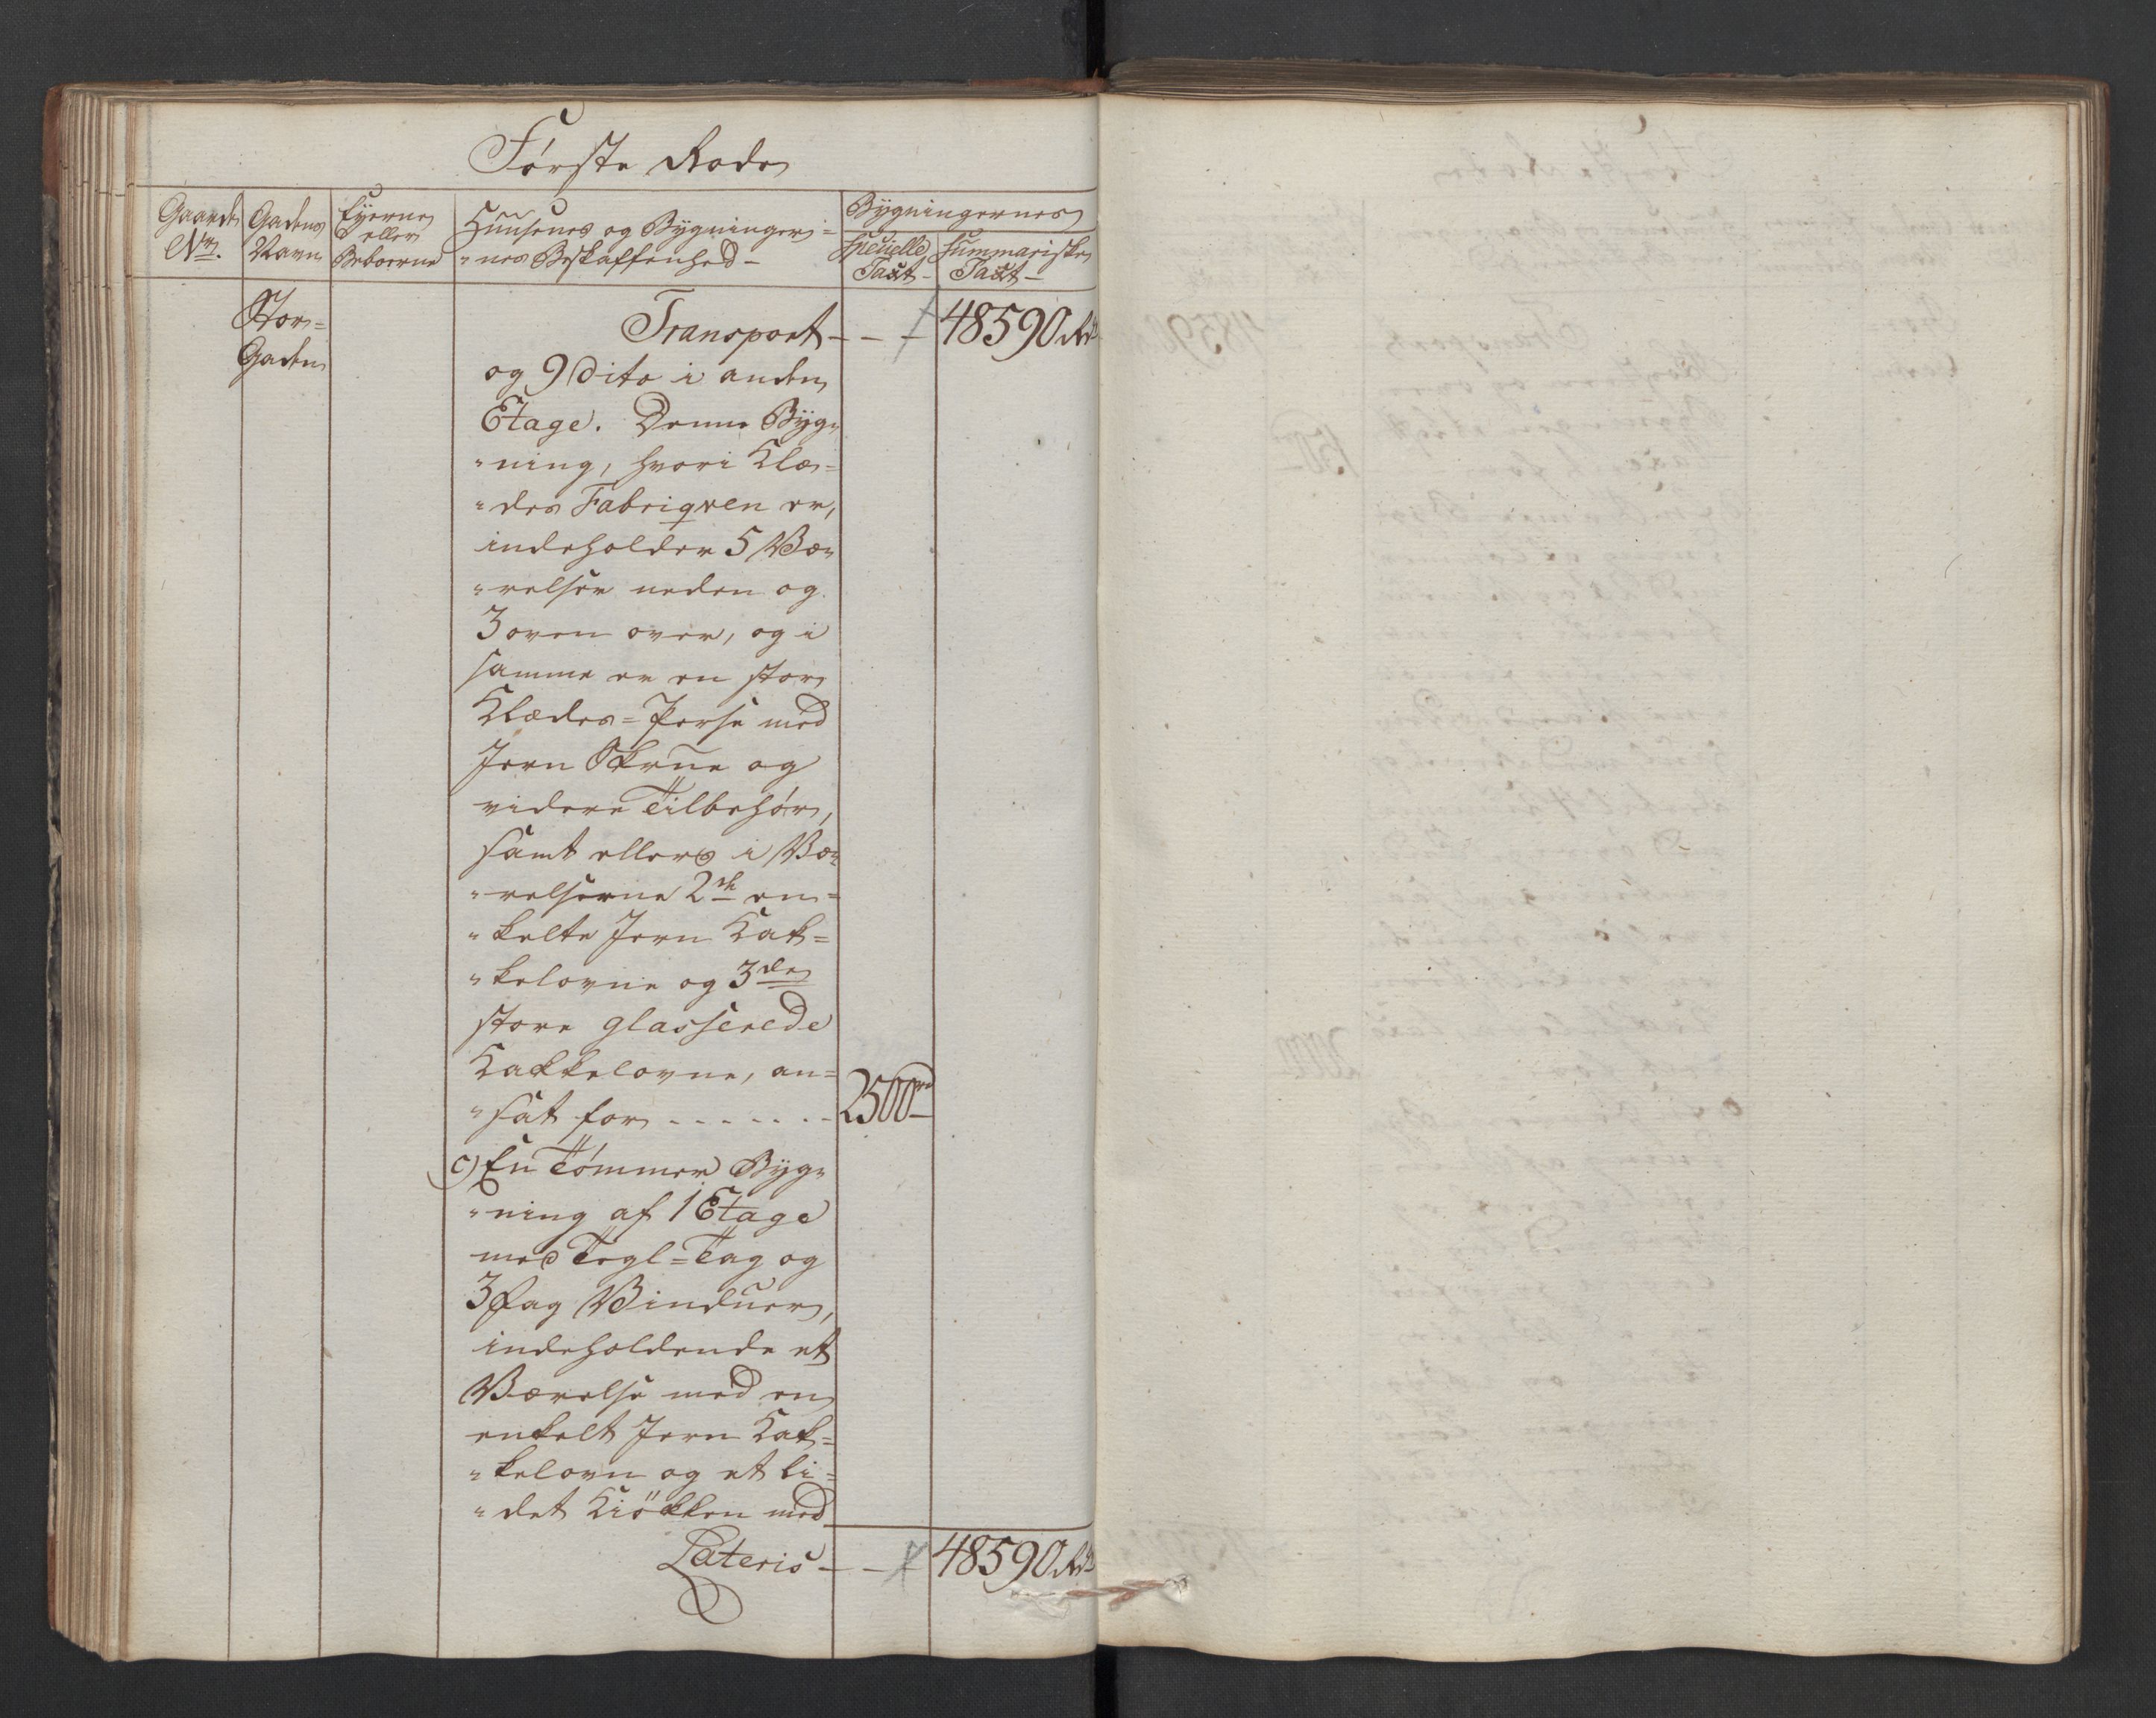 Første Rode
Gaardens Gadens Eyerne Huusenes og Bygninger= Bygningernes
eller
No. Navn Beboerne "nes Beskaffenhed- Specielle Summariske
Taxt- Taxt-
Stor= Transport - - 48590 Rd
Gaden
og 9 dito i anden
Etage. Denne Byg=
"ning, hvori Klæ=
"des Fabriqven er,
indeholder 5 Væ=
"relser neden og
3 oven over, og i
samme er en stor
Klædes=Perse med
Jern Skrue og
videre Tilbehør,
samt ellers i Væ=
"relserne 2de en=
"kelte Jern Kak=
"kelovne og 3de
store glasserede
Kakkelovne, an=
"sat for - - - - - - - 2500rd
c) En Tömmer Byg=
"ning af 1 Etage
med Tegl=Tag og
3 Fag Vinduer,
indeholdende et
Værelse med en
enkelt Jern Kak=
"kelovn og et li=
"det Kiökken med
Lateris - - 48590 Rd